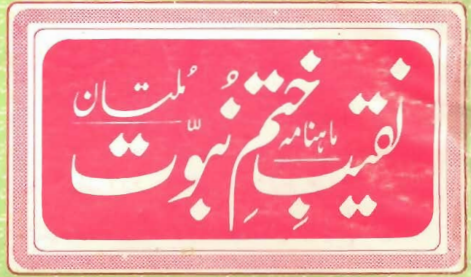 ماہنامہ
نقیبِ ختمِ نبوّت
مُلتان